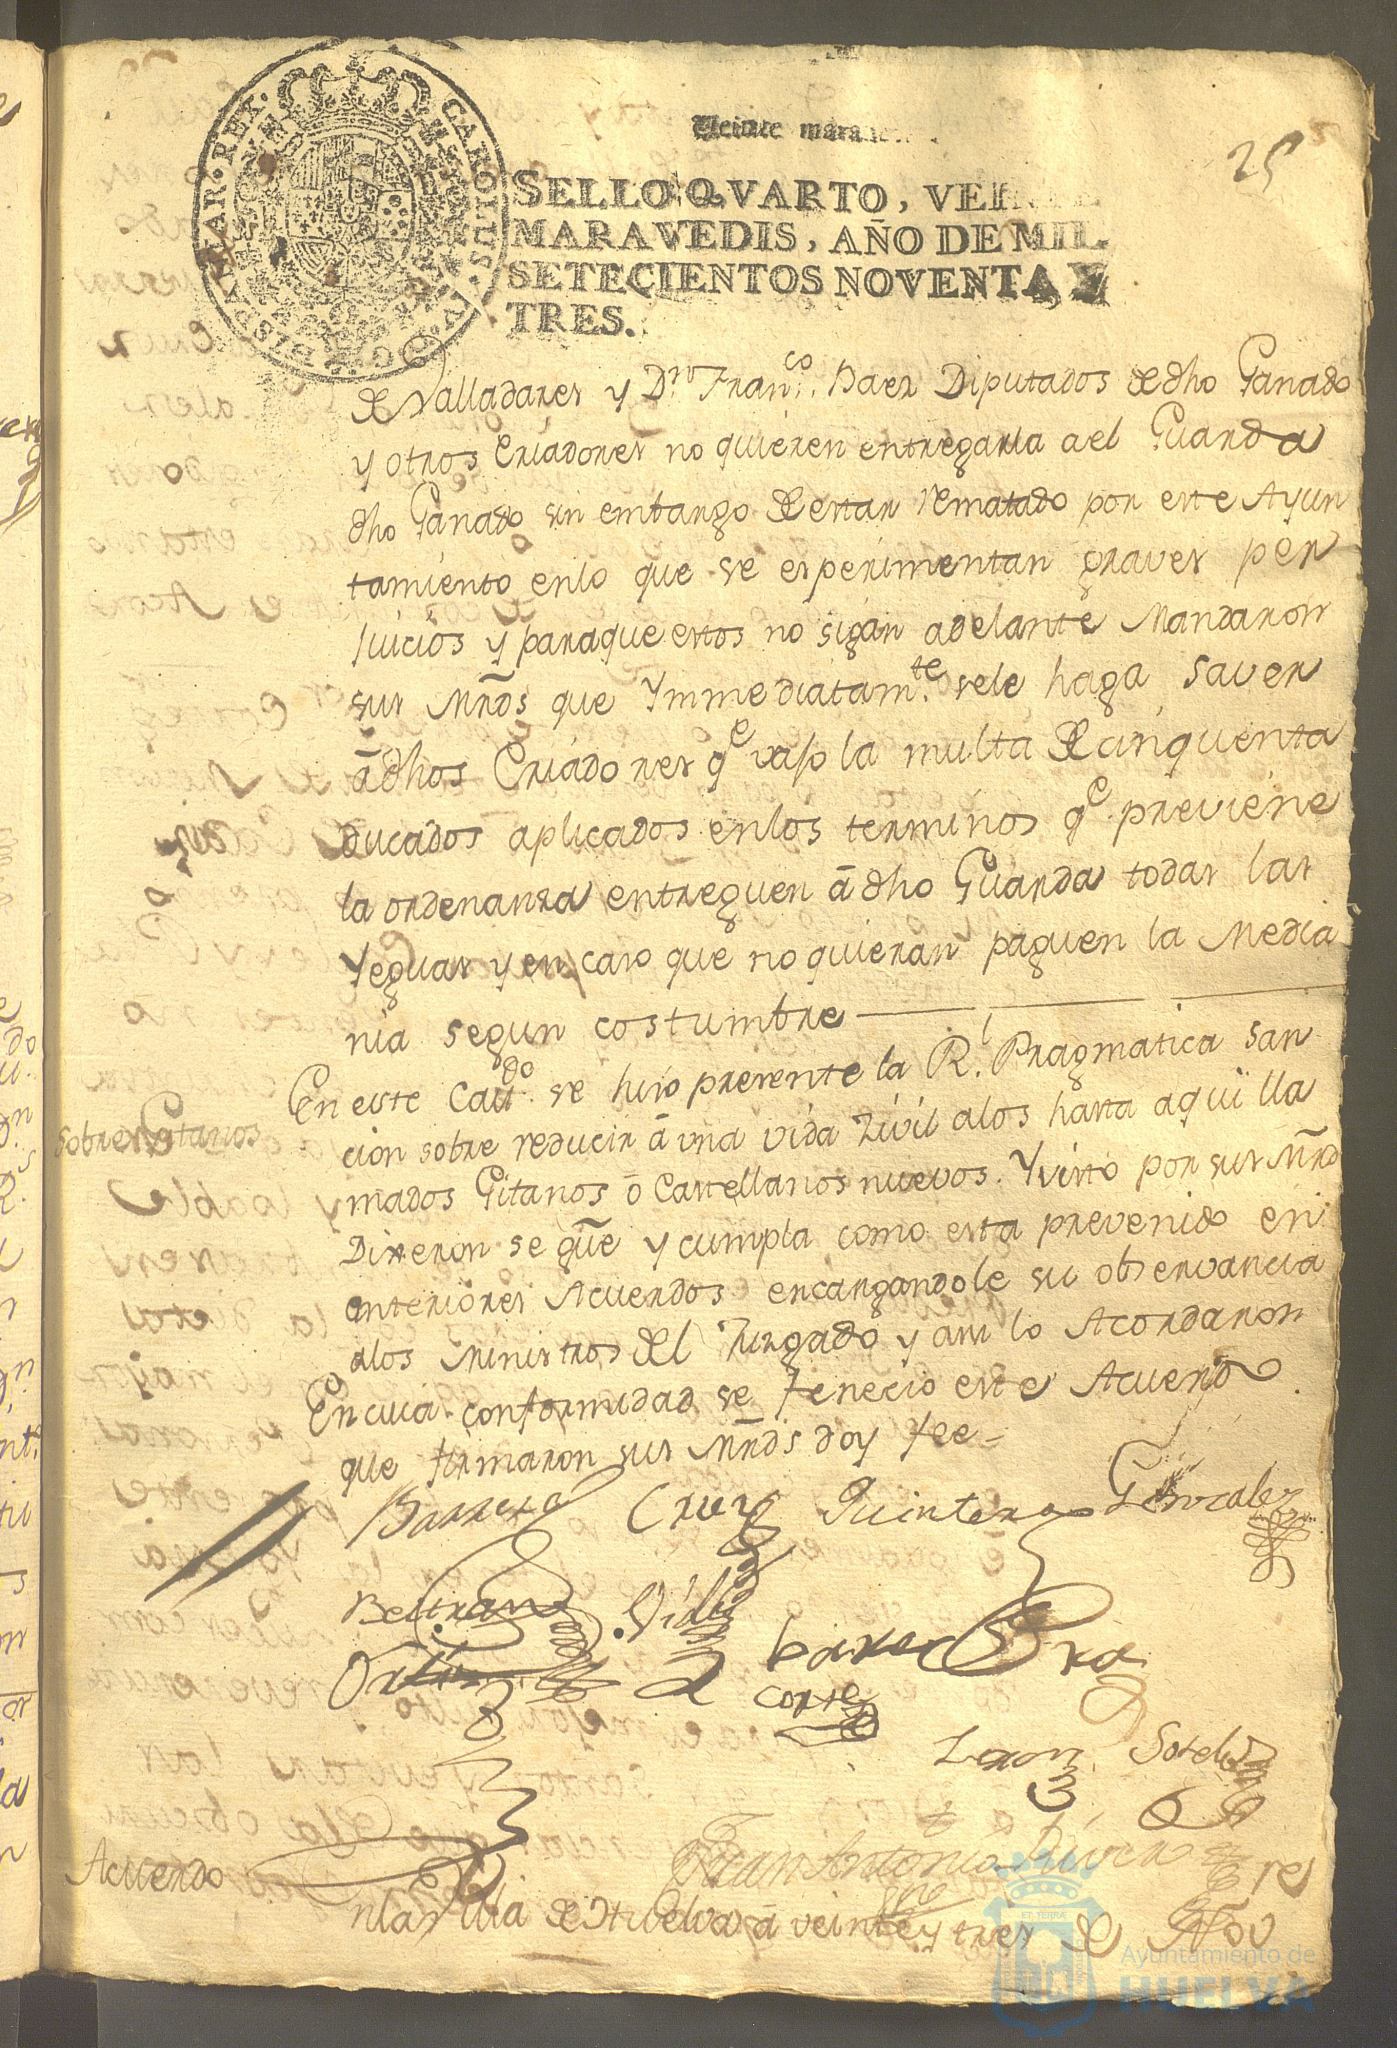 25
Veinte marave
SELLO QVARTO, VEINTE
MARAVEDIS, AÑO DE MIL
SETECIENTOS NOVENTA Y
TRES.
CAROLUS IV D G HISP ET IND REX
de Valladares y Dn Franco. Baez Diputados de dho Ganado
y otros Criadores no quieren entregarla a el Guarda
dho Ganado sin embargo de estar rematado por este Ayun
tamiento enlo que se esperimentan graves per
Juicios y paraque estos no sigan adelante Mandaron
sus Mrds que Ymmediatamte. sele haga saver
â dhos Criadores qe vajo la multa de cinquenta
ducados aplicados enlos terminos qe previene
la ordenanza entreguen â dho Guarda todas las
Yeguas y en caso que no quieran paguen la Media
nia segun costumbre
Sobre Gitanos
En este Cavdo. se hizo presente la Rl. Pragmatica San
cion sobre reducir â vna vida Zivil alos hasta aqui lla
mados Gitanos ô Castellanos nuevos. Y visto por sus Mrds
Dixeron se gûe y cumpla como esta prevenido en
anteriores Acuerdos encargandole su observancia
alos Ministros del Juzgado y assi lo Acordaron
En cuia conformidad se fenecio este Acuerdo
que firmaron sus Mrds doy fee
Barrera Cruz Quintero Gonzalez
Beltran Vides
Ortiz
Baez
Corte
Leon Sotelo
Juan Antonio Rivera
Acuerdo
nla Villa de Huelva â veinte y tres de Nov
Ayuntamiento de
HUELVA